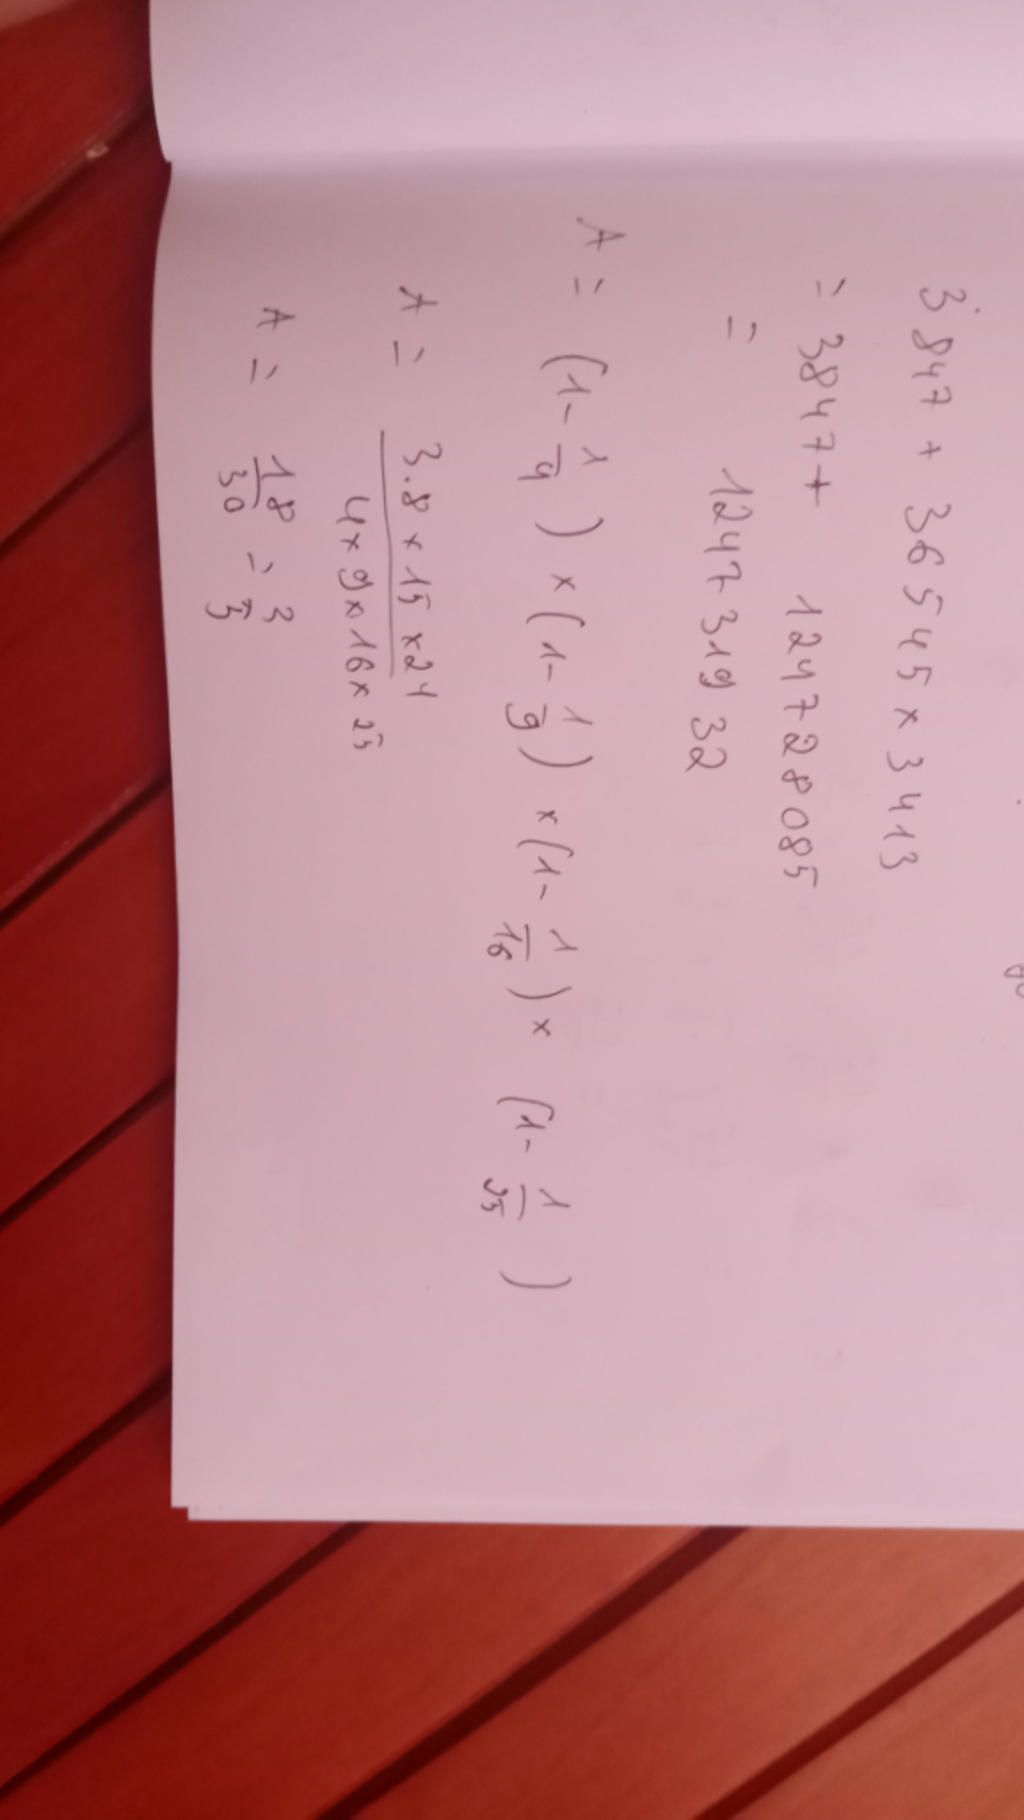 3847 + 36545 x 3413
= 3847 + 124728085
= 124731932
A = (1 - 1/4) x (1 - 1/9) x (1 - 1/16) x (1 - 1/25)
A = 3.8 x 15 x 24 / 4 x 9 x 16 x 25
A = 18/30 = 3/5